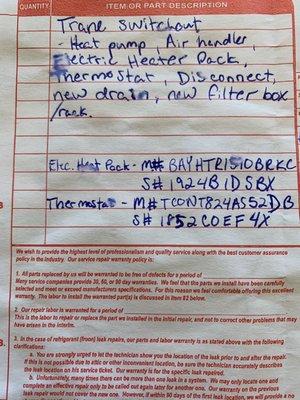 QUANTITY
ITEM OR PART DESCRIPTION
Trane switchout
- Heat pump, Air handler,
Electric Heater Pack,
Thermostat, Disconnect,
new drain, new filter box
/rack.
Elec. Heat Pack - M# BAYHTR1510BRKC
S# 1924B1DSBX
Thermostat - M# TCONT824AS52DB
S# 1852C0EF4X
We wish to provide the highest level of professionalism and quality service along with the best customer assurance
policy in the industry. Our service repair warranty policy is:
1. All parts replaced by us will be warranted to be free of defects for a period of
Many service companies provide 30, 60, or 90 day warranties. We feel that the parts we install have been carefully
selected and meet or exceed manufacturers specifications. For this reason we feel comfortable offering this excellent
warranty. The labor to install the warranted part(s) is discussed in item #2 below.
2. Our repair labor is warranted for a period of
This is the labor to repair or replace the part we installed in the initial repair, and not to correct other problems that may
have arisen in the interim.
3. In the case of refrigerant (freon) leak repairs, our parts and labor warranty is as stated above with the following
clarifications:
a. You are strongly urged to let the technician show you the location of the leak prior to and after the repair.
If this is not possible due to attic or other inconvenient location, be sure the technician accurately describes
the leak location on his service ticket. Our warranty is for the specific leak repaired.
b. Unfortunately, many times there can be more than one leak in a system. We may only locate one and
complete an effective repair only to be called out again later for another one. Our warranty on the previous
leak repair would not cover the new one. However, if within 90 days of the first leak location, we will provide a no